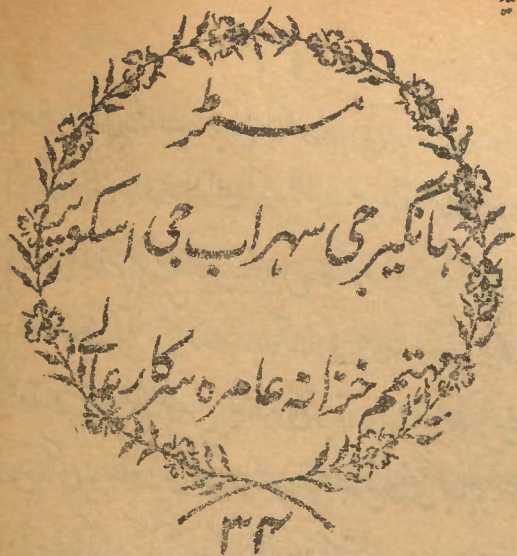 مسٹر
جہانگیر جی سہراب جی اسکویر
مہتمم خزانہ عامرہ سرکار عالے
۳۳